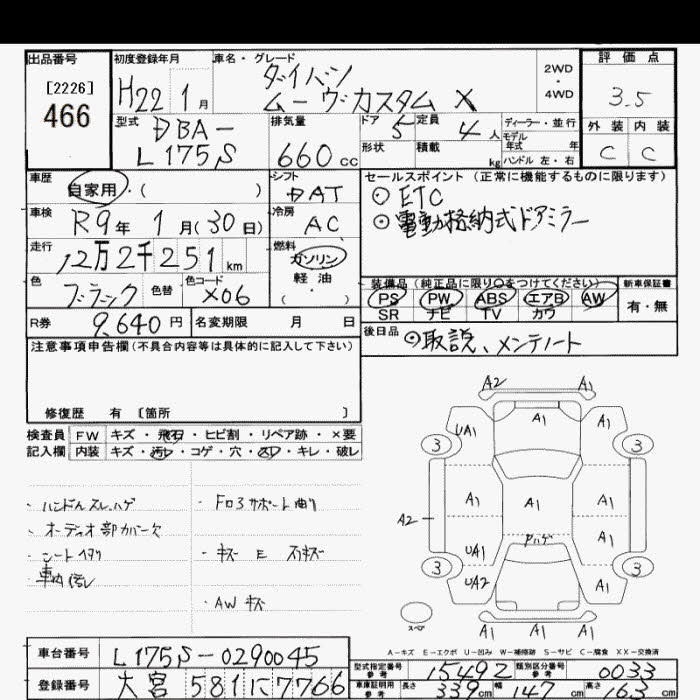 出品番号
[2226]
466
初度登録年月
H22 1月
車名・グレード
ダイハツ
ムーヴカスタム X
2WD
・
4WD
評価点
3.5
外装 内装
C C
型式
DBA-
L175S
排気量
660cc
ドア 5
定員 4人
形状
積載 kg
ディーラー・並行
モデル
年式 年
ハンドル 左・右
車歴
自家用・( )
シフト
DAT
車検
R9年 1月(30日)
冷房
AC
走行
12万2千251km
燃料
ガソリン
軽油
( ・ )
色
ブラック
色替
色コード
X06
R券
9,640円
名変期限 月 日
セールスポイント (正常に機能するものに限ります)
ETC
電動格納式ドアミラー
装備品 (純正品に限り○をつけてください)
PS PW ABS エアB AW
SR ナビ TV カワ
新車保証書
有・無
後日品
取説、メンテノート
注意事項申告欄(不具合内容等は具体的に記入して下さい)
修復歴 有 〔箇所 〕
検査員 FW キズ・飛石・ヒビ割・リペア跡・×要
記入欄 内装 キズ・汚レ・コゲ・穴・スレ・キレ・破レ
・ハンドルスレ、ハゲ
・オーディオ部カバー欠
・シートヘタリ
・車内汚レ
・キズ E スリキズ
・AWキズ
A2 A1
UA1 A1 A1
3 3
A1 A1 A1
A2
UA1 Pハゲ A1
3 3
UA2 A1
スペア
A1 A1 A1
A-キズ E-エクボ U-凹み W-補修跡 S-サビ C-腐食 XX-交換済
車台番号
L175S-0290045
登録番号
大宮 581 に 7766
型式指定番号
参考
15492
類別区分番号
参考
0033
車庫証明用
参考
長さ 339cm 幅 147cm 高さ 163